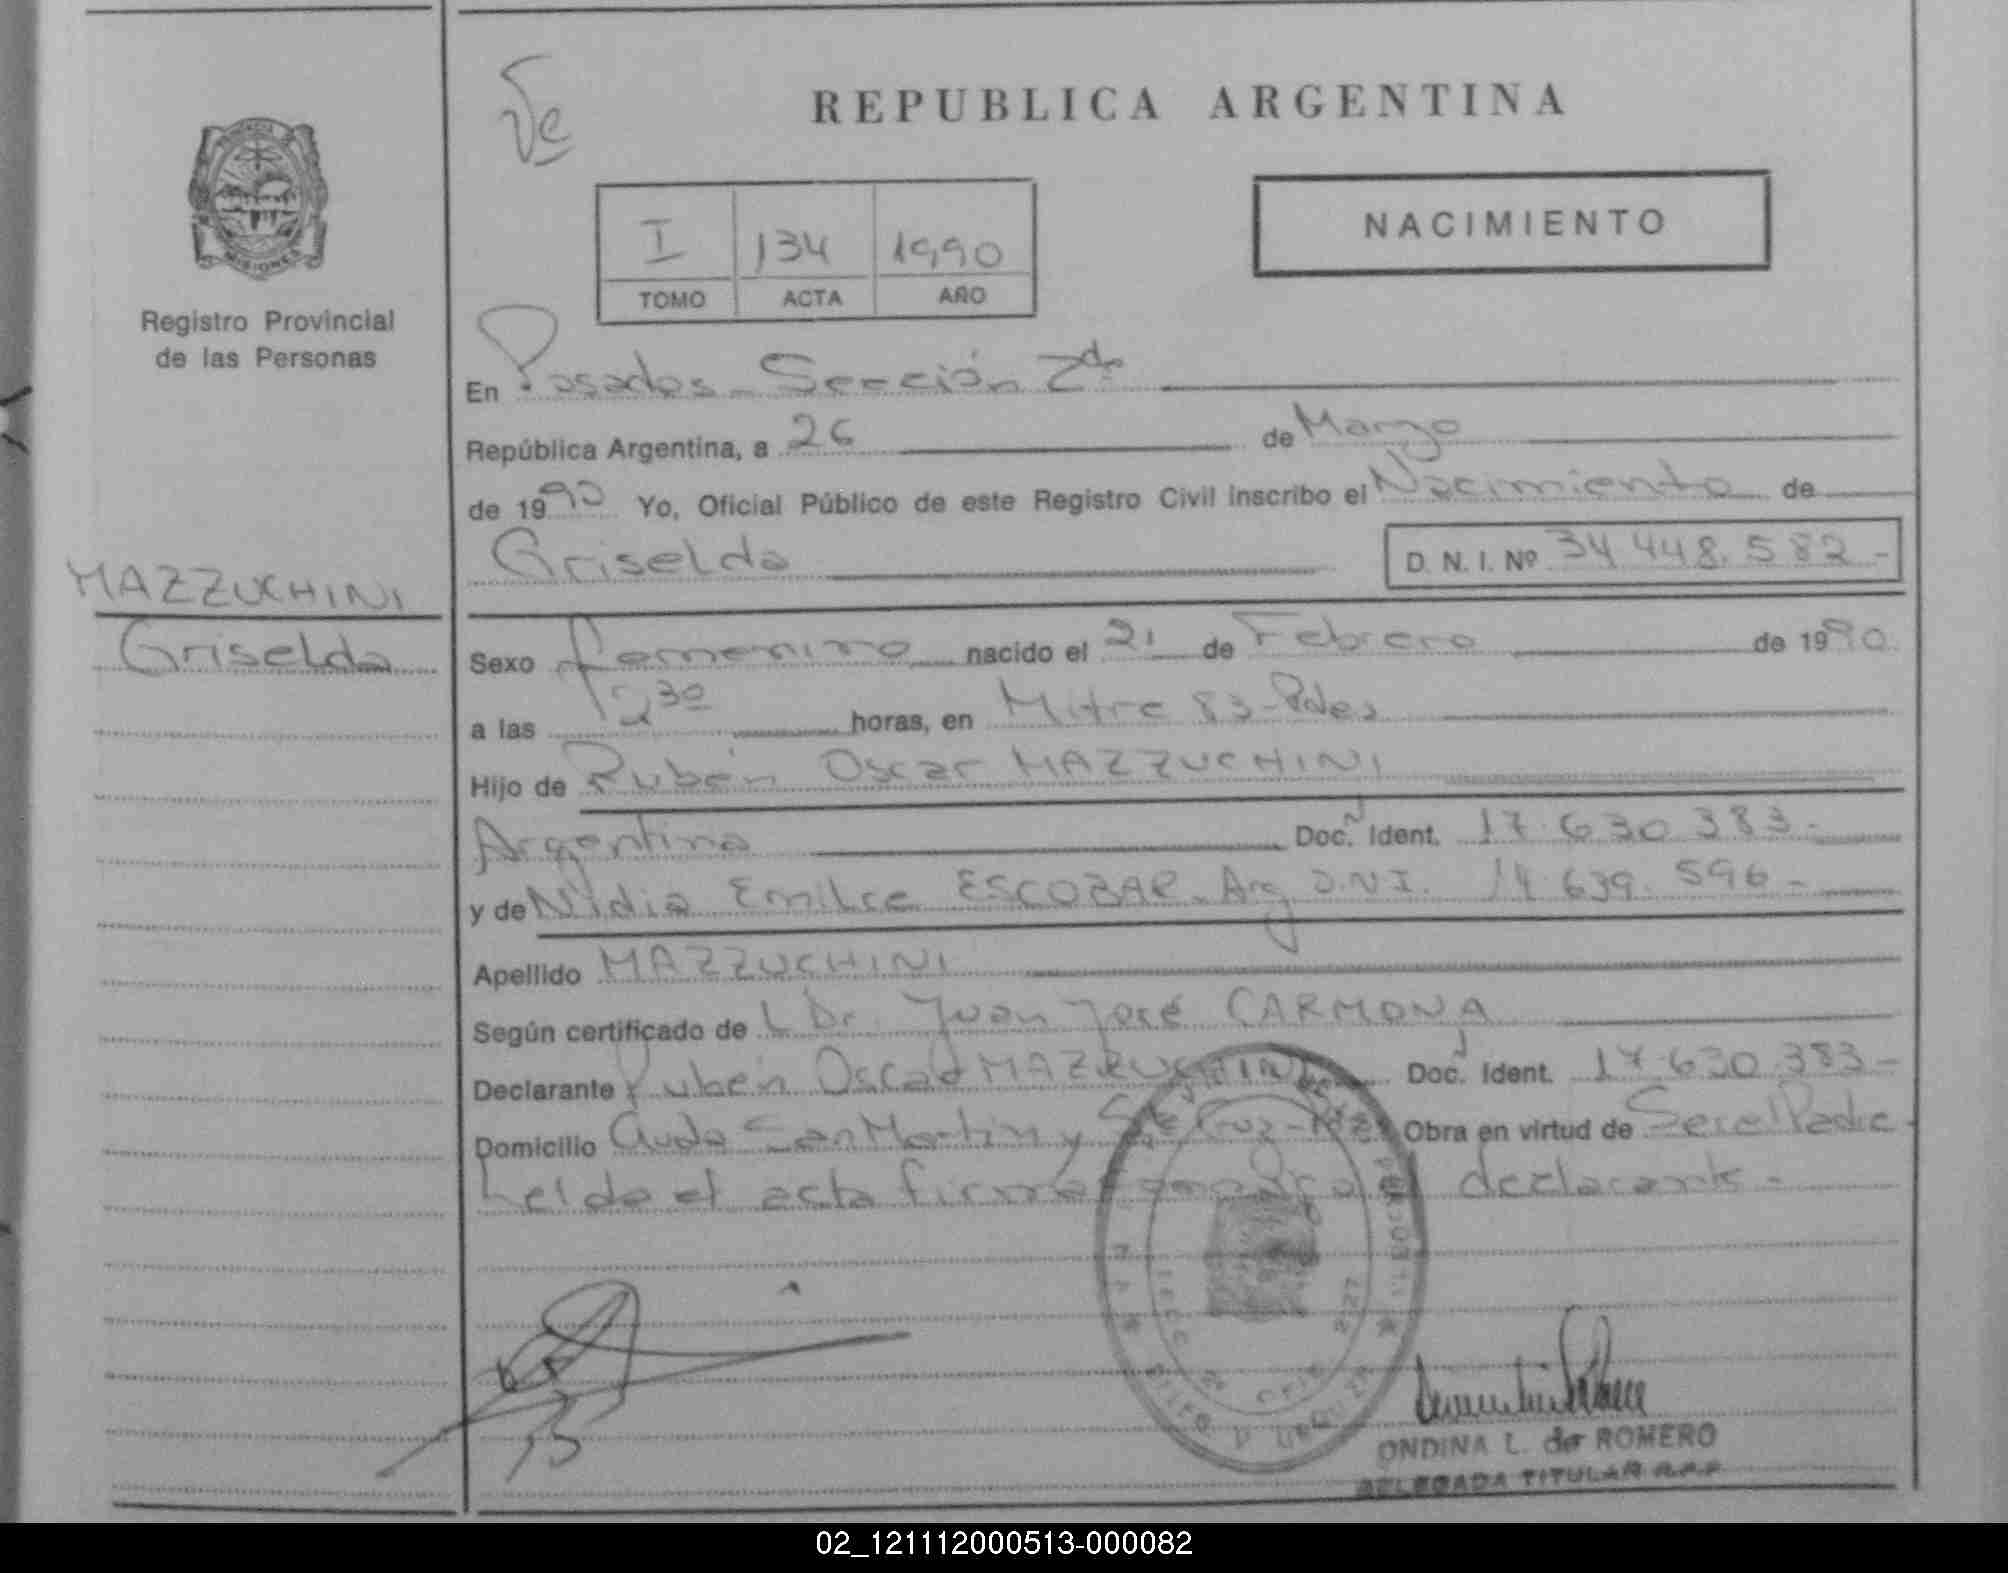 Ve
REPUBLICA ARGENTINA
NACIMIENTO
I 134 1990
TOMO ACTA AÑO
MISIONES
Registro Provincial
de las Personas
En Posadas - Sección 2da
República Argentina, a 26 de Marzo
de 1990 Yo, Oficial Público de este Registro Civil inscribo el Nacimiento de
Griselda D. N. I. Nº 34.448.582-
MAZZUCHINI
Griselda
Sexo femenino nacido el 21 de Febrero de 1990
a las 1230 horas, en Mitre 83-Pdas
Hijo de Rubén Oscar MAZZUCHINI
Argentina Doc. Ident. 17.630.383-
y de Nidia Emilce ESCOBAR - Arg D.N.I. 14.639.596-
Apellido MAZZUCHINI
Según certificado de L Dr. Juan José CARMONA
Declarante Rubén Oscar MAZZUCHINI Doc. Ident. 17.630.383-
Domicilio Avda San Martin y Sta Cruz - Pdas Obra en virtud de Ser el Padre
Leida el acta firma declarante -
ONDINA L. de ROMERO
DELEGADA TITULAR R.P.P.
02_121112000513-000082